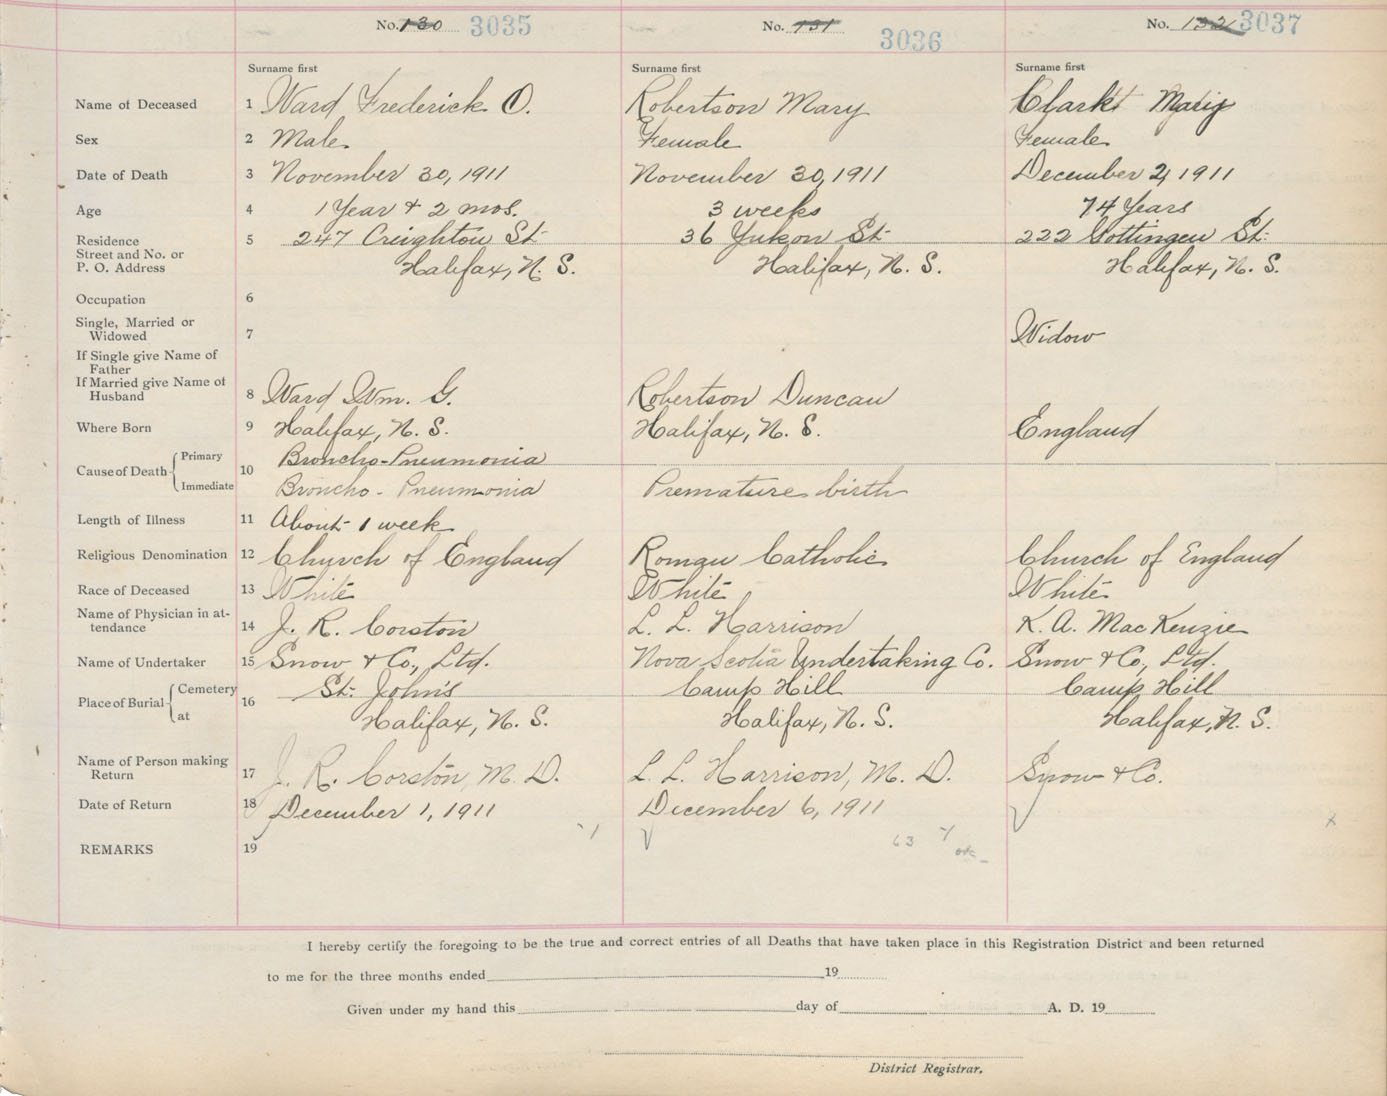 No. 130 3035 No. 131 3036 No. 132 3037
Surname first Surname first Surname first
Name of Deceased 1 Ward Frederick O. Robertson Mary Clark Mary
Sex 2 Male Female Female
Date of Death 3 November 30, 1911 November 30, 1911 December 2, 1911
Age 4 1 Year & 2 mos. 3 weeks 74 Years
Residence 5 247 Creighton St. 36 Yukon St. 222 Gottingen St.
Street and No. or
P. O. Address Halifax, N. S. Halifax, N. S. Halifax, N. S.
Occupation 6
Single, Married or
Widowed 7 Widow
If Single give Name of
Father
If Married give Name of
Husband 8 Ward Wm. G. Robertson Duncan
Where Born 9 Halifax, N. S. Halifax, N. S. England
Cause of Death Primary 10 Broncho-Pneumonia
Immediate Broncho-Pneumonia Premature birth
Length of Illness 11 About 1 week
Religious Denomination 12 Church of England Roman Catholic Church of England
Race of Deceased 13 White White White
Name of Physician in at-
tendance 14 J. R. Corston L. L. Harrison K. A. MacKenzie
Name of Undertaker 15 Snow & Co., Ltd. Nova Scotia Undertaking Co. Snow & Co., Ltd.
Place of Burial Cemetery 16 St. John's Camp Hill Camp Hill
at Halifax, N. S. Halifax, N. S. Halifax, N. S.
Name of Person making
Return 17 J. R. Corston, M. D. L. L. Harrison, M. D. Snow & Co.
Date of Return 18 December 1, 1911 December 6, 1911
REMARKS 19 63
I hereby certify the foregoing to be the true and correct entries of all Deaths that have taken place in this Registration District and been returned
to me for the three months ended 19
Given under my hand this day of A. D. 19
District Registrar.